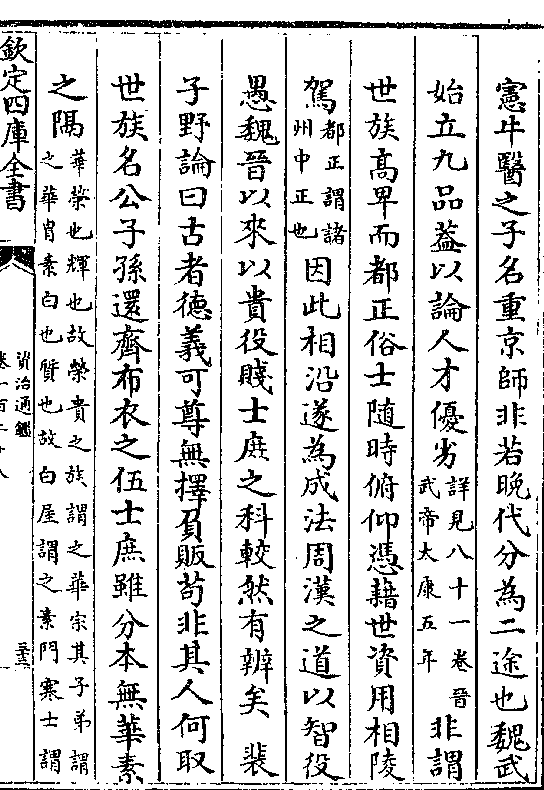 憲牛醫之子名重京師非若晚代分為二途也魏武
始立九品葢以論人才優劣詳見八十一卷晉武帝太康五年非謂
世族髙卑而都正俗士随時俯仰憑藉世資用相陵
駕都正謂諸州中正也因此相沿遂為成法周漢之道以智役
愚魏晉以來以貴役賤士庶之科較然有辨矣 裴
子野論曰古者德義可尊無擇負販苟非其人何取
世族名公子孫還齊布衣之伍士庶雖分本無華素
之隔華榮也輝也故榮貴之族謂之華宗其子弟謂之華胄素白也質也故白屋謂之素門寒士謂
欽定四庫全書
資治通鑑
卷一百二十八